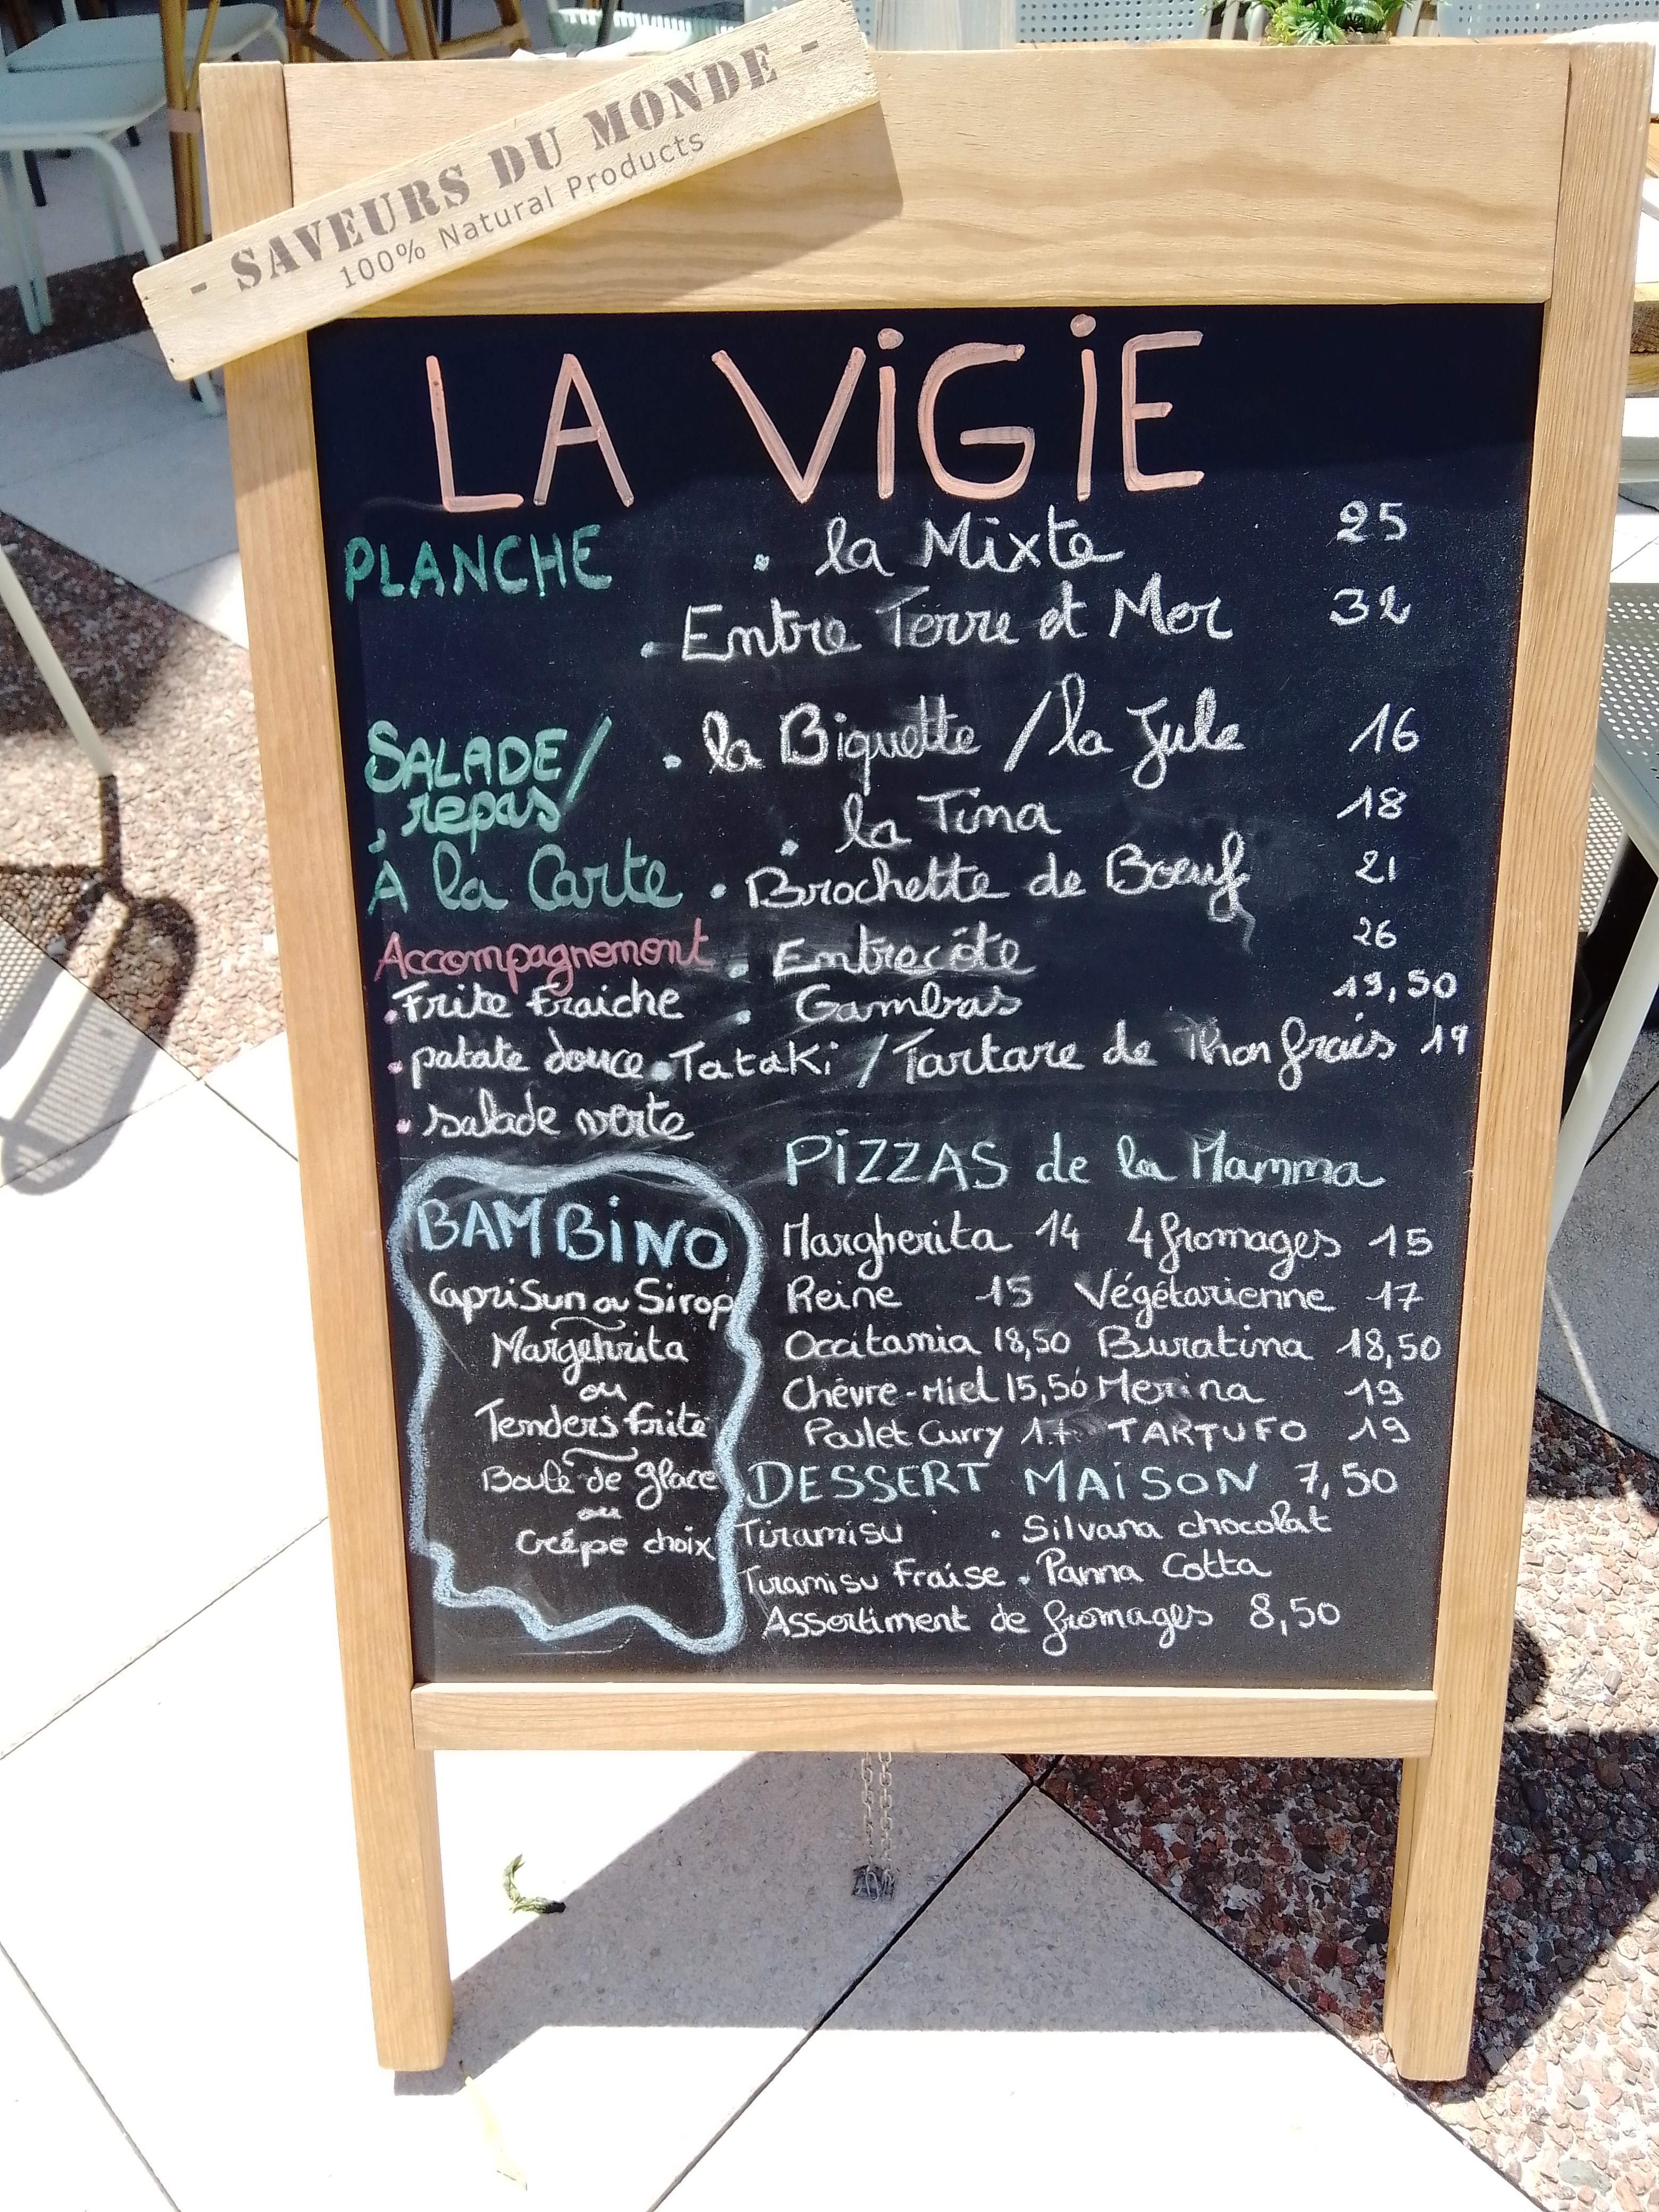 - SAVEURS DU MONDE -
100% Natural Products
LA ViGiE
PLANCHE . la Mixte 25
. Entre Terre et Mer 32
SALADE/ . la Biquette / la Jule 16
repas/ . la Tina 18
À la Carte . Brochette de Boeuf 21
Accompagnement . Entrecôte 26
. Frite Fraiche . Gambas 19,50
. patate douce . Tataki / Tartare de Thon frais 19
. salade verte
PiZZAS de la Mamma
Margherita 14 4 fromages 15
Reine 15 Végétarienne 17
Occitania 18,50 Buratina 18,50
Chèvre-Miel 15,50 Merina 19
Poulet Curry 17 TARTUFO 19
BAMBiNO
CapriSun ou Sirop
Margehrita
ou
Tenders frite
Boule de glace
ou
Crêpe choix
DESSERT MAiSON 7,50
Tiramisu . Silvana chocolat
Tiramisu Fraise . Panna Cotta
Assortiment de fromages 8,50